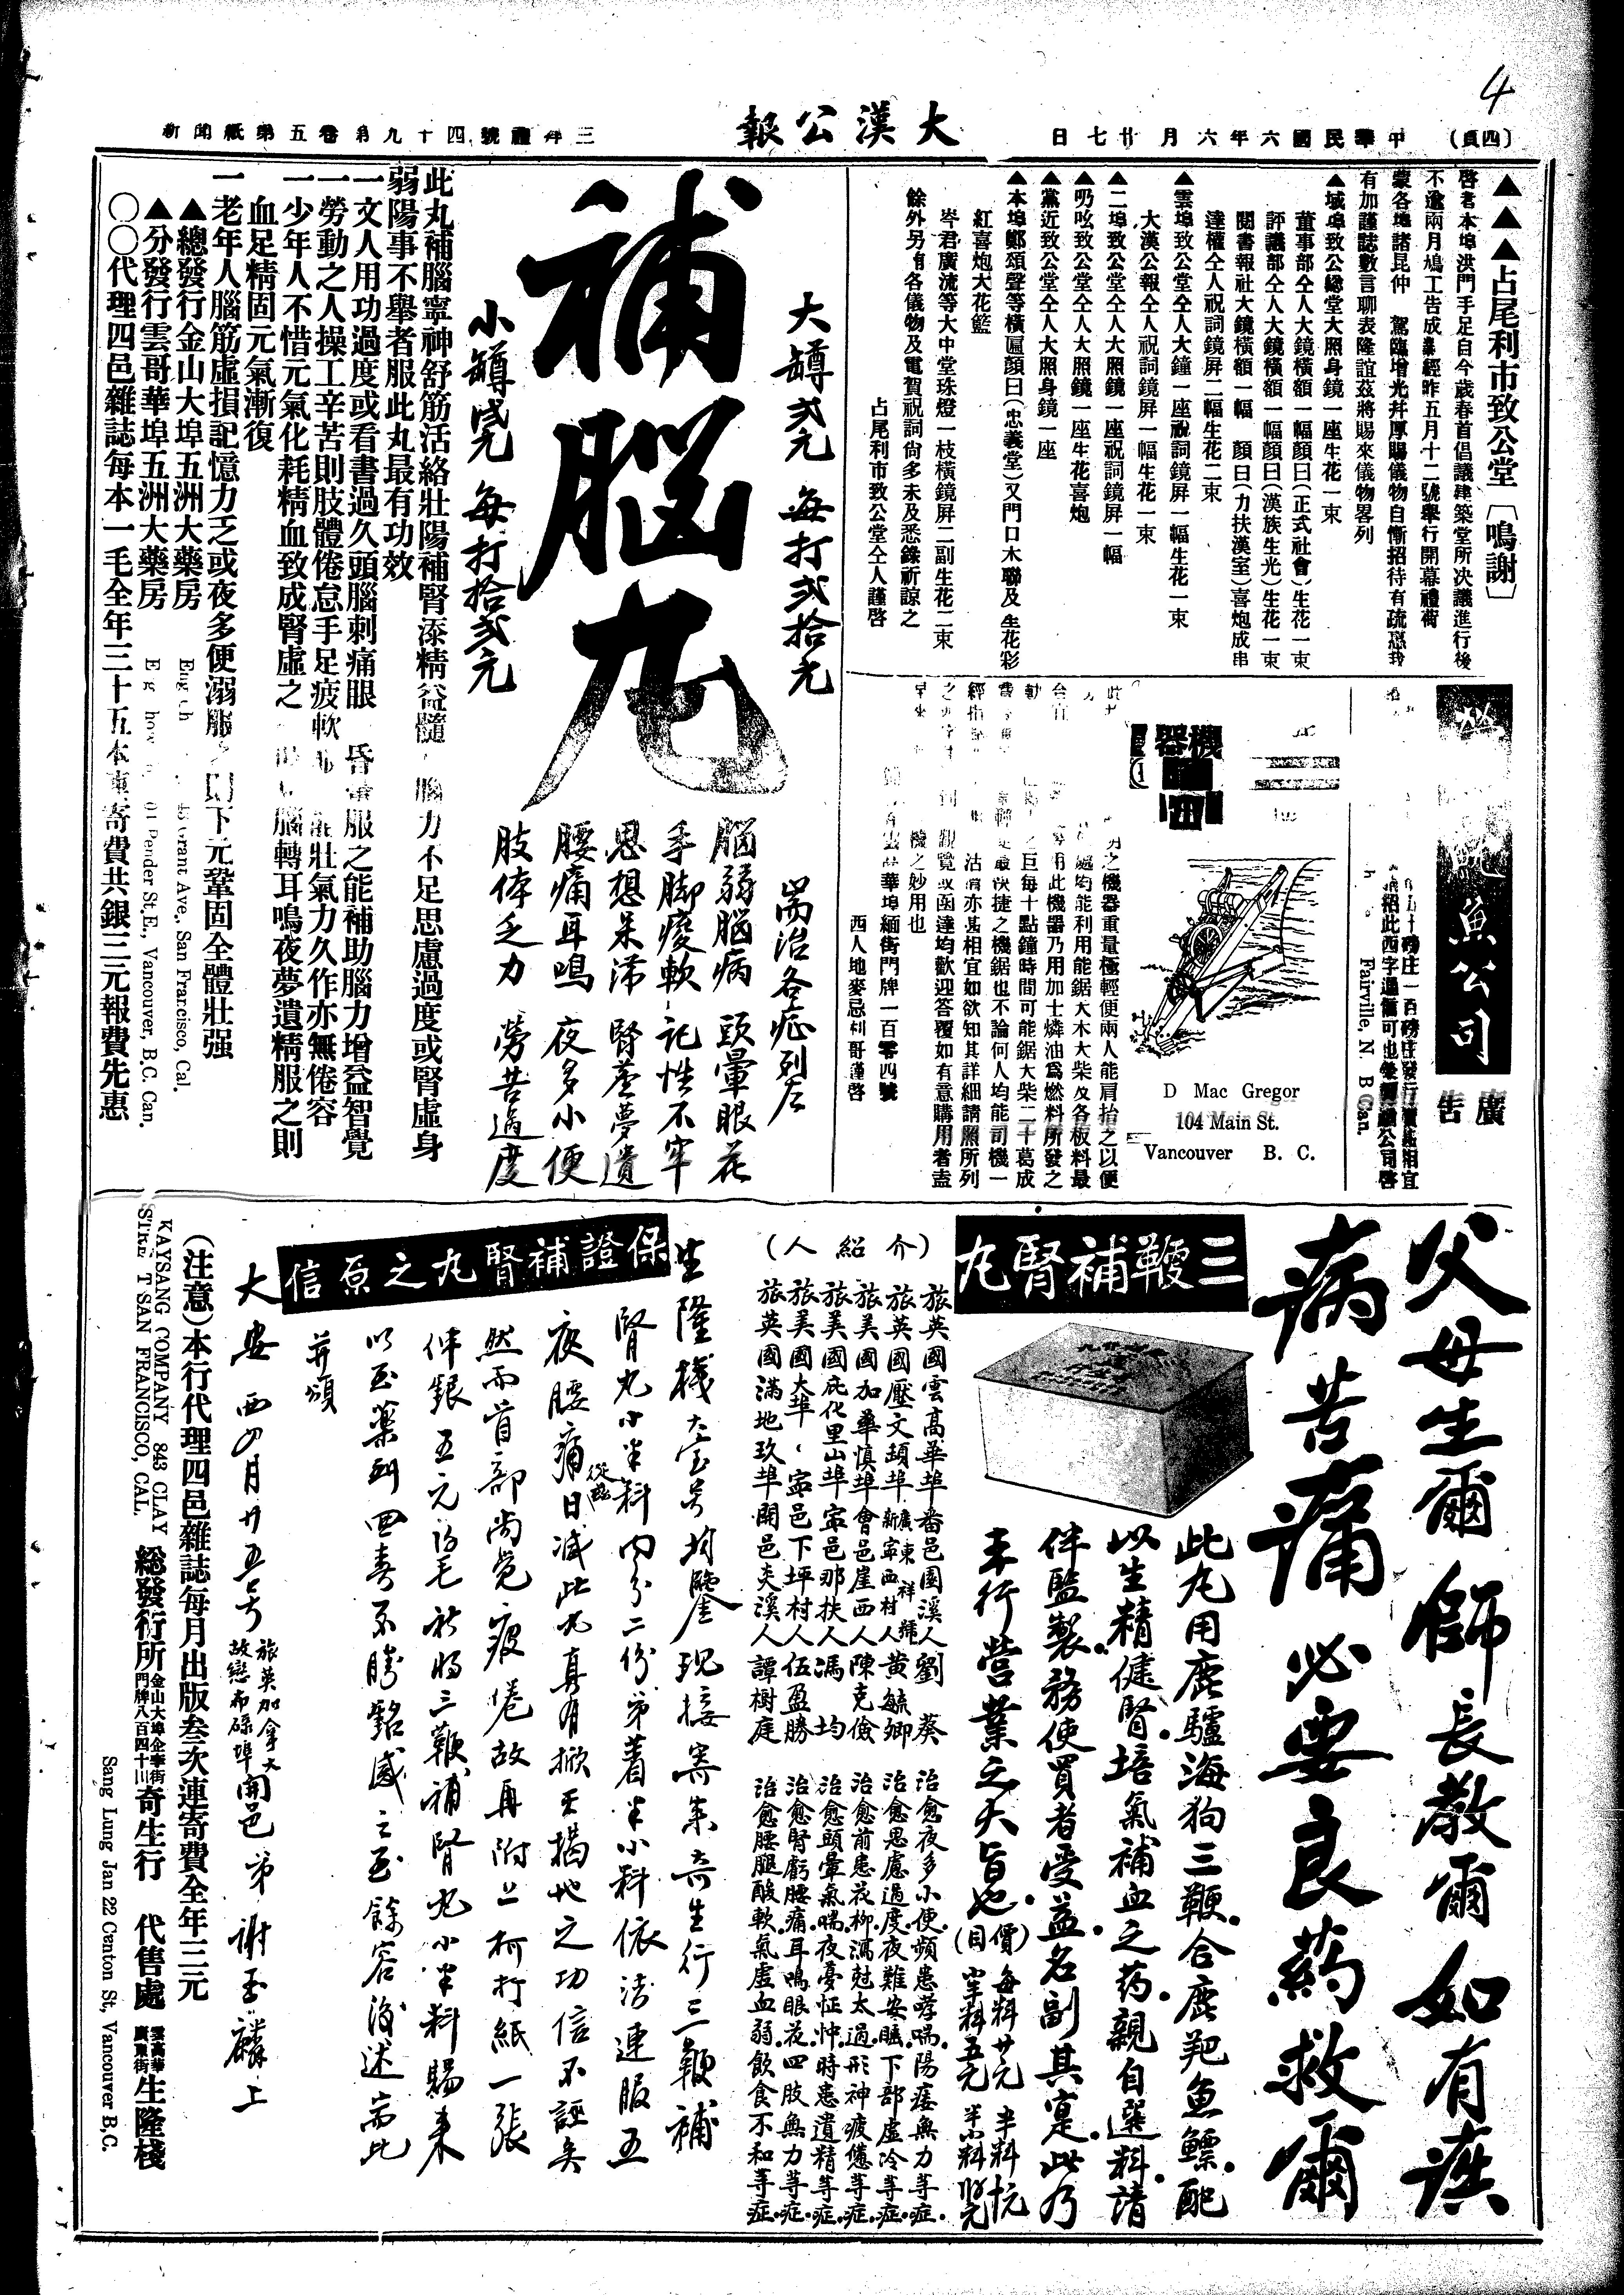 4
(四頁)
中華民國六年六月廿七日
大漢公報
三拜禮號四十九第卷五第紙聞新
▲▲▲占尾利市致公堂〔鳴謝〕
啓者本埠洪門手足自今歲春首倡議建築堂所决議進行後
不逾兩月鳩工告成業經昨五月十二號舉行開幕禮荷
蒙各埠諸昆仲 駕臨增光幷厚賜儀物自慚招待有疏
有加謹誌數言聊表隆誼茲將賜來儀物畧列
▲域埠致公總堂大照身鏡一座生花一束
董事部仝人大鏡橫額一幅顏曰(正式社會)生花一束
評議部仝人大鏡橫額一幅顏曰(漢族生光)生花一束
閱書報社大鏡橫額一幅 顏曰(力扶漢室)喜炮成串
達權仝人祝詞鏡屏二幅生花二束
▲雲埠致公堂仝人大鐘一座祝詞鏡屏一幅生花一束
大漢公報仝人祝詞鏡屏一幅生花一束
▲二埠致公堂仝人大照鏡一座祝詞鏡屏一幅
▲叼吆致公堂仝人大照鏡一座生花喜炮
▲黨近致公堂仝人大照身鏡一座
▲本埠鄭頌聲等橫匾顏曰(忠義堂)又門口木聯及生花彩
紅喜炮大花籃
岑君廣流等大中堂珠燈一枝橫鏡屏二副生花二束
餘外另有各儀物及電賀祝詞尙多未及悉錄祈諒之
占尾利市致公堂仝人謹啓
魚公司
廣告
Fairville, N. B. Can.
機器
D Mac Gregor
104 Main St.
Vancouver B. C.
明之機器重量極輕便兩人能肩抬之以便
處均能利用能鋸大木大柴及各板料最
用此機器乃用加士燐油爲燃料所發之
巨每十點鐘時間可能鋸大柴二十葛成
最快捷之機鋸也不論何人均能司機一
沽亦甚相宜如欲知其詳細請照所列
觀覽或函達均歡迎答覆如有意購用者盍
機之妙用也
雲高華埠緬街門牌一百零四號
西人地麥忌利哥謹啓
大罇弍元 每打弍拾元
補腦丸
小罇壹元 每打拾弍元
耑治各症列左
腦弱腦病 頭暈眼花
手脚痠軟 記性不牢
思想呆滯 腎虧夢遺
腰痛耳鳴 夜多小便
肢体乏力 勞苦過度
此丸補腦寧神舒筋活絡壯陽補腎添精益髓 腦力不足思慮過度或腎虛身
弱陽事不舉者服此丸最有功效
一文人用功過度或看書過久頭腦刺痛眼 昏 服之能補助腦力增益智覺
一勞動之人操工辛苦則肢體倦怠手足疲軟 能壯氣力久作亦無倦容
一少年人不惜元氣化耗精血致成腎虛之 腦轉耳鳴夜夢遺精服之則
血足精固元氣漸復
一老年人腦筋虛損記憶力乏或夜多便溺服 則下元鞏固全體壯强
▲總發行金山大埠五洲大藥房
Grant Ave., San Francisco, Cal.
▲分發行雲哥華埠五洲大藥房
Pender St, E., Vancouver, B.C. Can.
〇〇代理四邑雜誌每本一毛全年三十五本連寄費共銀三元報費先惠
父母生爾 師長教爾 如有疾
病苦痛 必要良藥救爾
三鞭補腎丸
此丸用鹿驢海狗三鞭合鹿羓魚鰾配
以生精健腎培氣補血之药親自選料請
伴監製務使買者受益名副其寔此乃
本行營業之大旨也
(價目)
每料廿元 半料
小半料五元 半小料
(介紹人)
旅英國雲高華埠番邑園溪人劉葵 治愈夜多小便頻患哮喘陽痿無力等症
旅英國壓文頓埠廣東新寧西村祥號人黄毓卿 治愈思慮過度夜難安眠下部虛冷等症
旅美國加華慎埠會邑崖西人陳克儉 治愈前患花柳瀉尅太過形神疲倦等症
旅美國庇化里山埠寧邑那扶人馮均 治愈頭暈氣喘夜憂怔忡時患遺精等症
旅美國大埠寧邑下坪村人伍盈勝 治愈腎虧腰痛耳鳴眼花四肢無力等症
旅英國滿地玖埠開邑夾溪人譚樹庭 治愈腰腿酸軟氣虛血弱飲食不和等症
保證補腎丸之原信
生隆棧大宝号均鑒 現接寄來奇生行三鞭補
腎丸小半料內分二份弟着半小料依法連服五
夜腰痛從茲日減此丸真有掀天揭地之功信不誣矣
然而首部尚覺疲倦故再附上柯打紙一張
伸銀五元 祈將三鞭補腎丸小半料賜来
以至藥到回春不勝銘感之至餘容後述耑此
并頌
大安 西四月廿五号 旅英加拿大故戀布碌埠開邑弟 謝玉麟上
(注意)本行代理四邑雜誌每月出版叁次連寄費全年三元
KAYSANG COMPANY 843 CLAY
STREET SAN FRANCISCO, CAL.
総發行所 金山大埠企李街門牌八百四十三 奇生行 代售處 雲高華廣東街 生隆棧
Sang Lung Jan 22 Canton St, Vancouver B,C.